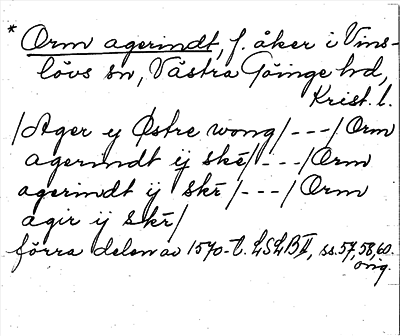 * Orm agerindt, f. åker i Vins-
lövs sn, Västra Göinge hd,
Krist. l.
/Ager ij Østre wong/---/Orm
agerindt ij skē/---/Orm
agerindt ij skr̄/---/Orm
agir ij skr̄/
förra delen av 1570-t. LSLB II, ss. 57, 58, 60.
orig.